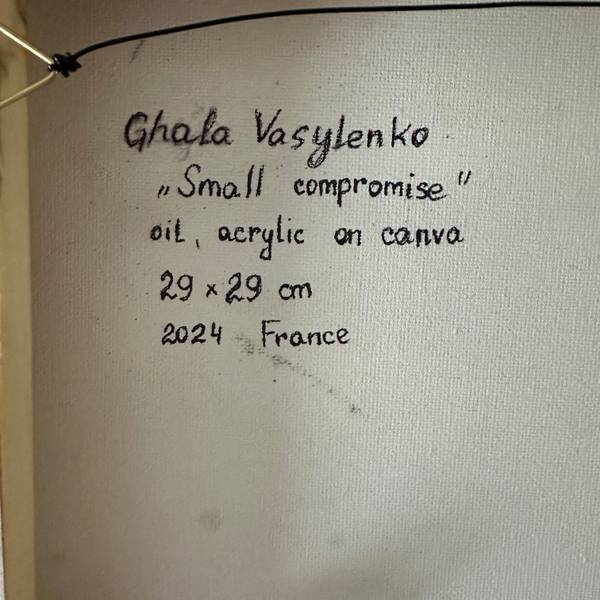 Ghala Vasylenko
„Small compromise"
oil, acrylic on canva
29 × 29 cm
2024 France